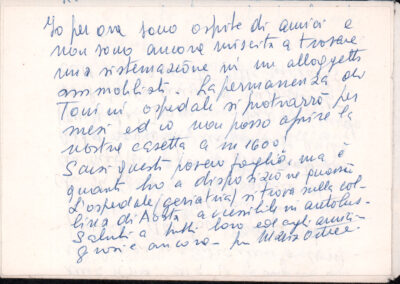 Io per ora sono ospite di amici e
non sono ancora riuscita a trovare
una sistemazione in un alloggetto
ammobiliato. La permanenza di
Toni in ospedale si protrarrà per
mesi ed io non posso aprire la
nostra casetta a m 1600!
Scusi questo povero foglio, ma è
quanto ho a disposizione quassù
L'ospedale (geriatria) si trova sulla col-
lina di Aosta accessibile in autobus-
Saluti a tutti loro ed agli amici-
Grazie ancora-